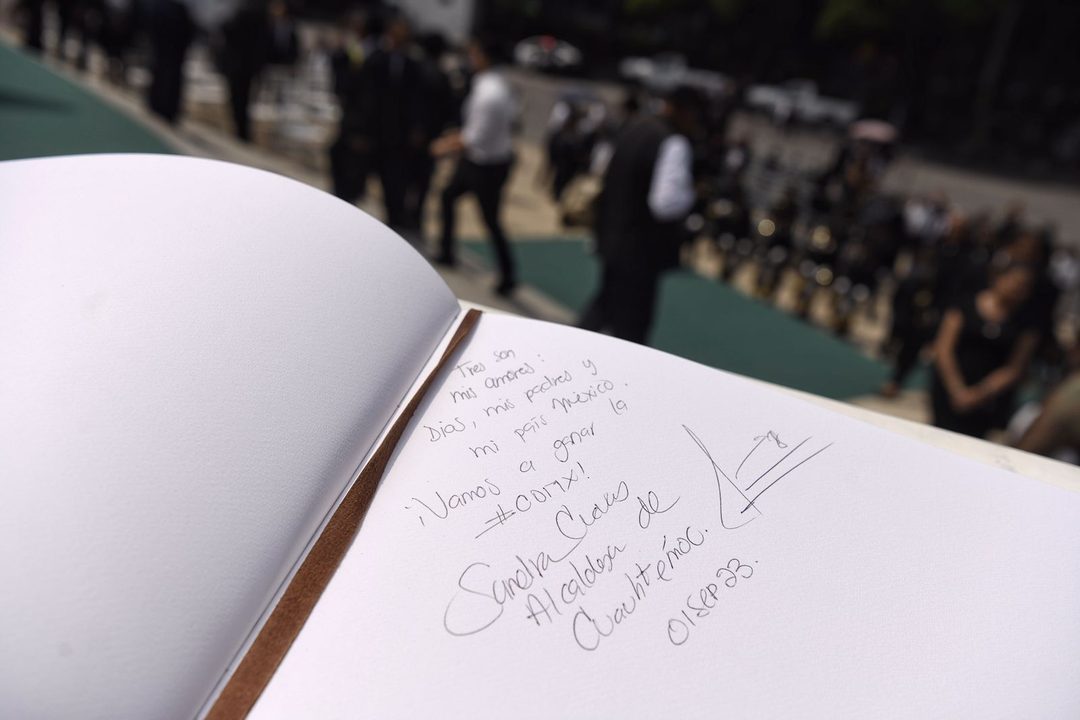 Tres son
mis amores:
Dios, mis padres y
mi país México.
¡Vamos a ganar la
#CDMX!
Sandra Cuevas
Alcaldesa de
Cuauhtémoc.
01Sep23.